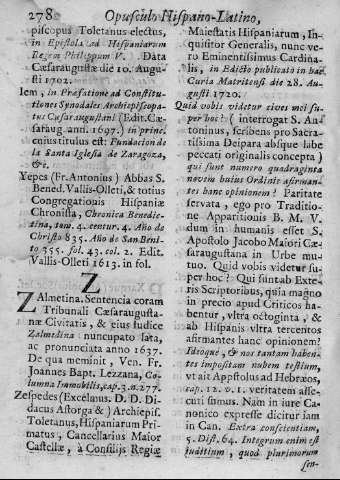 278 Opusculo Hispano-Latino,
piscopus Toletanus electus,
in Epistola ad Hispaniarum
Regem Philippum V. Data
Cæsaraugustæ die 10. Augu-
sti 1702.
Iem, in Præfatione ad Constitu-
tiones Synodales Archiepiscopa-
tus Cæsaraugustani (Edit. Cæ-
saraug. ann. 1697.) in princ.
cuius titulus est: Fundacion de
la Santa Iglesia de Zaragoza,
&c.
Yepes (Fr. Antonius) Abbas S.
Bened. Vallis-Olleti, & totius
Congregationis Hispaniæ
Chronista, Chronica Benedic-
tina, tom. 4. centur. 4. Año de
Christo 835. Año de San Beni-
to 355. fol. 43. col. 2. Edit.
Vallis-Olleti 1613. in fol.
Z
Zalmetina. Sentencia coram
Tribunali Cæsaraugusta-
næ Civitatis, & eius Iudice
Zalmedina nuncupato lata,
ac pronunciata anno 1637.
De qua meminit, Ven. Fr.
Joannes Bapt. Lezzana, Co-
lumna Immobilis, cap. 3. n. 277.
Zespedes (Excelmus. D. D. Di-
dacus Astorga &) Archiepis.
Toletanus, Hispaniarum Pri-
matus, Cancellarius Maior
Castellæ, à Consilijs Regiæ
Maiestatis Hispaniarum, In-
quisitor Generalis, nunc ve-
ro Eminentissimus Cardina-
lis, in Edicto publicato in hac
Curia Matritensi die 28. Au-
gusti 1720.
Quid vobis videtur cives mei su-
per hoc? (interrogat S. An-
toninus, scribens pro Sacra-
tissima Deipara absque labe
peccati originalis concepta)
qui sunt numero quadraginta
novem huius Ordinis affirman-
tes hanc opinionem? Paritate
servata, ego pro Traditio-
ne Apparitionis B. M. V.
dum in humanis esset S.
Apostolo Jacobo Maiori Cæ-
saraugustana in Urbe mu-
tuo. Quid vobis videtur su-
per hoc? Qui suntab Exte-
ris Scriptoribus, quia magno
in precio apud Criticos ha-
bentur, vltra octoginta, &
ab Hispanis vltra tercentos
affirmantes hanc opinionem?
Ideoque, & nos tantam haben-
tes impositam nubem testium,
vt ait Apostolus ad Hebræos,
cap. 12. v. 1. veritatem asse-
cuti sumus. Nam in iure Ca-
nonico expresse dicitur iam
in Can. Extra conscientiam,
5. Dist. 64. Integrum enim est
iuditium, quod plurimorum
sen-